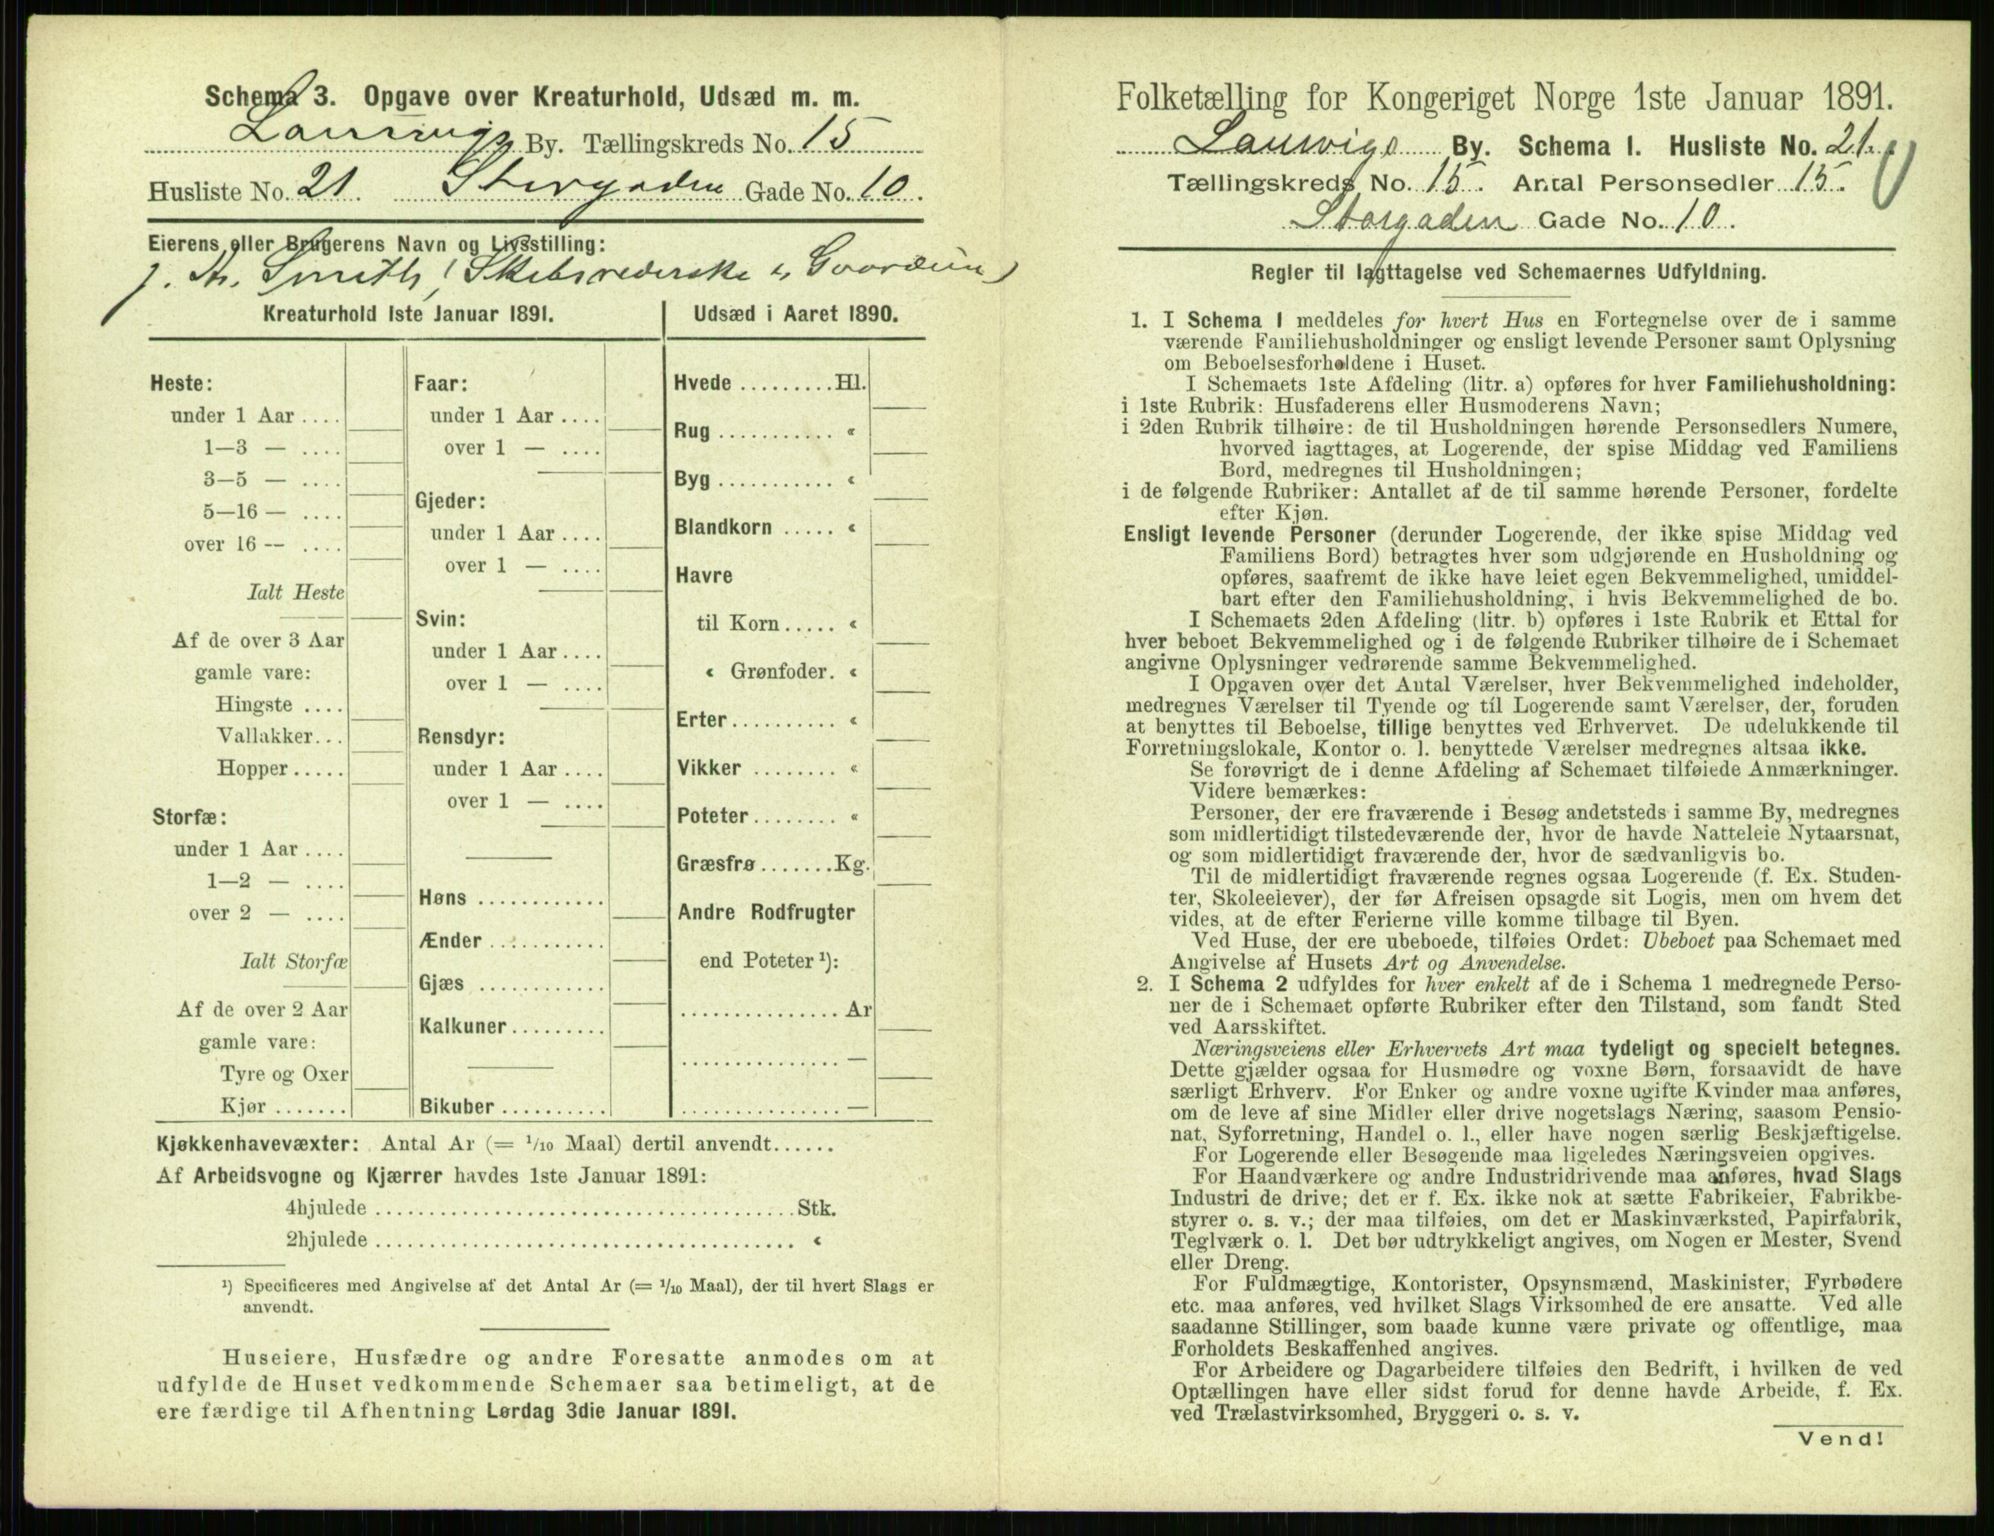 Schema 3. Opgave over Kreaturhold, Udsæd m. m.
By. Tællingskreds No. 15
Husliste No. 21. Storgaden Gade No. 10.
Eierens eller Brugerens Navn og Livsstilling:
J. Smith,
Kreaturhold 1ste Januar 1891.
Heste:
under 1 Aar ....
1—3 — ....
3—5 — ....
5—16 — ....
over 16 — ....
Ialt Heste
Af de over 3 Aar
gamle vare:
Hingste ....
Vallakker...
Hopper.....
Storfæ:
under 1 Aar ....
1—2 — ....
over 2 — ....
Ialt Storfæ
Af de over 2 Aar
gamle vare:
Tyre og Oxer
Kjør .......
Faar:
under 1 Aar ....
over 1 — ....
Gjeder:
under 1 Aar ....
over 1 — ....
Svin:
under 1 Aar ....
over 1 — ....
Rensdyr:
under 1 Aar ....
over 1 — ....
Høns ............
Ænder ...........
Gjæs ............
Kalkuner.........
Bikuber ..........
Udsæd i Aaret 1890.
Hvede .........Hl.
Rug ........... «
Byg ........... «
Blandkorn ..... «
Havre
til Korn..... «
« Grønfoder. «
Erter.......... «
Vikker ........ «
Poteter........ «
Græsfrø.......Kg.
Andre Rodfrugter
end Poteter ¹):
............... Ar
............... —
............... —
Kjøkkenhavevæxter: Antal Ar (= 1/10 Maal) dertil anvendt......
Af Arbeidsvogne og Kjærrer havdes 1ste Januar 1891:
4hjulede ......................................Stk.
2hjulede ...................................... «
¹) Specificeres med Angivelse af det Antal Ar (= 1/10 Maal), der til hvert Slags er
anvendt.
Huseiere, Husfædre og andre Foresatte anmodes om at
udfylde de Huset vedkommende Schemaer saa betimeligt, at de
ere færdige til Afhentning Lørdag 3die Januar 1891.
Folketælling for Kongeriget Norge 1ste Januar 1891.
Laurvigs By. Schema 1. Husliste No. 21.
Tællingskreds No. 15. Antal Personsedler 15.
Storgaden Gade No. 10.
Regler til Iagttagelse ved Schemaernes Udfyldning.
1. I Schema 1 meddeles for hvert Hus en Fortegnelse over de i samme
værende Familiehusholdninger og ensligt levende Personer samt Oplysning
om Beboelsesforholdene i Huset.
I Schemaets 1ste Afdeling (litr. a) opføres for hver Familiehusholdning:
i 1ste Rubrik: Husfaderens eller Husmoderens Navn;
i 2den Rubrik tilhøire: de til Husholdningen hørende Personsedlers Numere,
hvorved iagttages, at Logerende, der spise Middag ved Familiens
Bord, medregnes til Husholdningen;
i de følgende Rubriker: Antallet af de til samme hørende Personer, fordelte
efter Kjøn.
Ensligt levende Personer (derunder Logerende, der ikke spise Middag ved
Familiens Bord) betragtes hver som udgjørende en Husholdning og
opføres, saafremt de ikke have leiet egen Bekvemmelighed, umiddel-
bart efter den Familiehusholdning, i hvis Bekvemmelighed de bo.
I Schemaets 2den Afdeling (litr. b) opføres i 1ste Rubrik et Ettal for
hver beboet Bekvemmelighed og i de følgende Rubriker tilhøire de i Schemaet
angivne Oplysninger vedrørende samme Bekvemmelighed.
I Opgaven over det Antal Værelser, hver Bekvemmelighed indeholder,
medregnes Værelser til Tyende og til Logerende samt Værelser, der, foruden
at benyttes til Beboelse, tillige benyttes ved Erhvervet. De udelukkende til
Forretningslokale, Kontor o. l. benyttede Værelser medregnes altsaa ikke.
Se forøvrigt de i denne Afdeling af Schemaet tilføiede Anmærkninger.
Videre bemærkes:
Personer, der ere fraværende i Besøg andetsteds i samme By, medregnes
som midlertidigt tilstedeværende der, hvor de havde Natteleie Nytaarsnat,
og som midlertidigt fraværende der, hvor de sædvanligvis bo.
Til de midlertidigt fraværende regnes ogsaa Logerende (f. Ex. Studen-
ter, Skoleelever), der før Afreisen opsagde sit Logis, men om hvem det
vides, at de efter Ferierne ville komme tilbage til Byen.
Ved Huse, der ere ubeboede, tilføies Ordet: Ubeboet paa Schemaet med
Angivelse af Husets Art og Anvendelse.
2. I Schema 2 udfyldes for hver enkelt af de i Schema 1 medregnede Perso-
ner de i Schemaet opførte Rubriker efter den Tilstand, som fandt Sted
ved Aarsskiftet.
Næringsveiens eller Erhvervets Art maa tydeligt og specielt betegnes.
Dette gjælder ogsaa for Husmødre og voxne Børn, forsaavidt de have
særligt Erhverv. For Enker og andre voxne ugifte Kvinder maa anføres,
om de leve af sine Midler eller drive nogetslags Næring, saasom Pensio-
nat, Syforretning, Handel o. l., eller have nogen særlig Beskjæftigelse.
For Logerende eller Besøgende maa ligeledes Næringsveien opgives.
For Haandværkere og andre Industridrivende maa anføres, hvad Slags
Industri de drive; det er f. Ex. ikke nok at sætte Fabrikeier, Fabrikbe-
styrer o. s. v.; der maa tilføies, om det er Maskinværksted, Papirfabrik,
Teglværk o. l. Det bør udtrykkeligt angives, om Nogen er Mester, Svend
eller Dreng.
For Fuldmægtige, Kontorister, Opsynsmænd, Maskinister, Fyrbødere
etc. maa anføres, ved hvilket Slags Virksomhed de ere ansatte. Ved alle
saadanne Stillinger, som baade kunne være private og offentlige, maa
Forholdets Beskaffenhed angives.
For Arbeidere og Dagarbeidere tilføies den Bedrift, i hvilken de ved
Optællingen have eller sidst forud for denne havde Arbeide, f. Ex.
ved Trælastvirksomhed, Bryggeri o. s. v.
Vend!